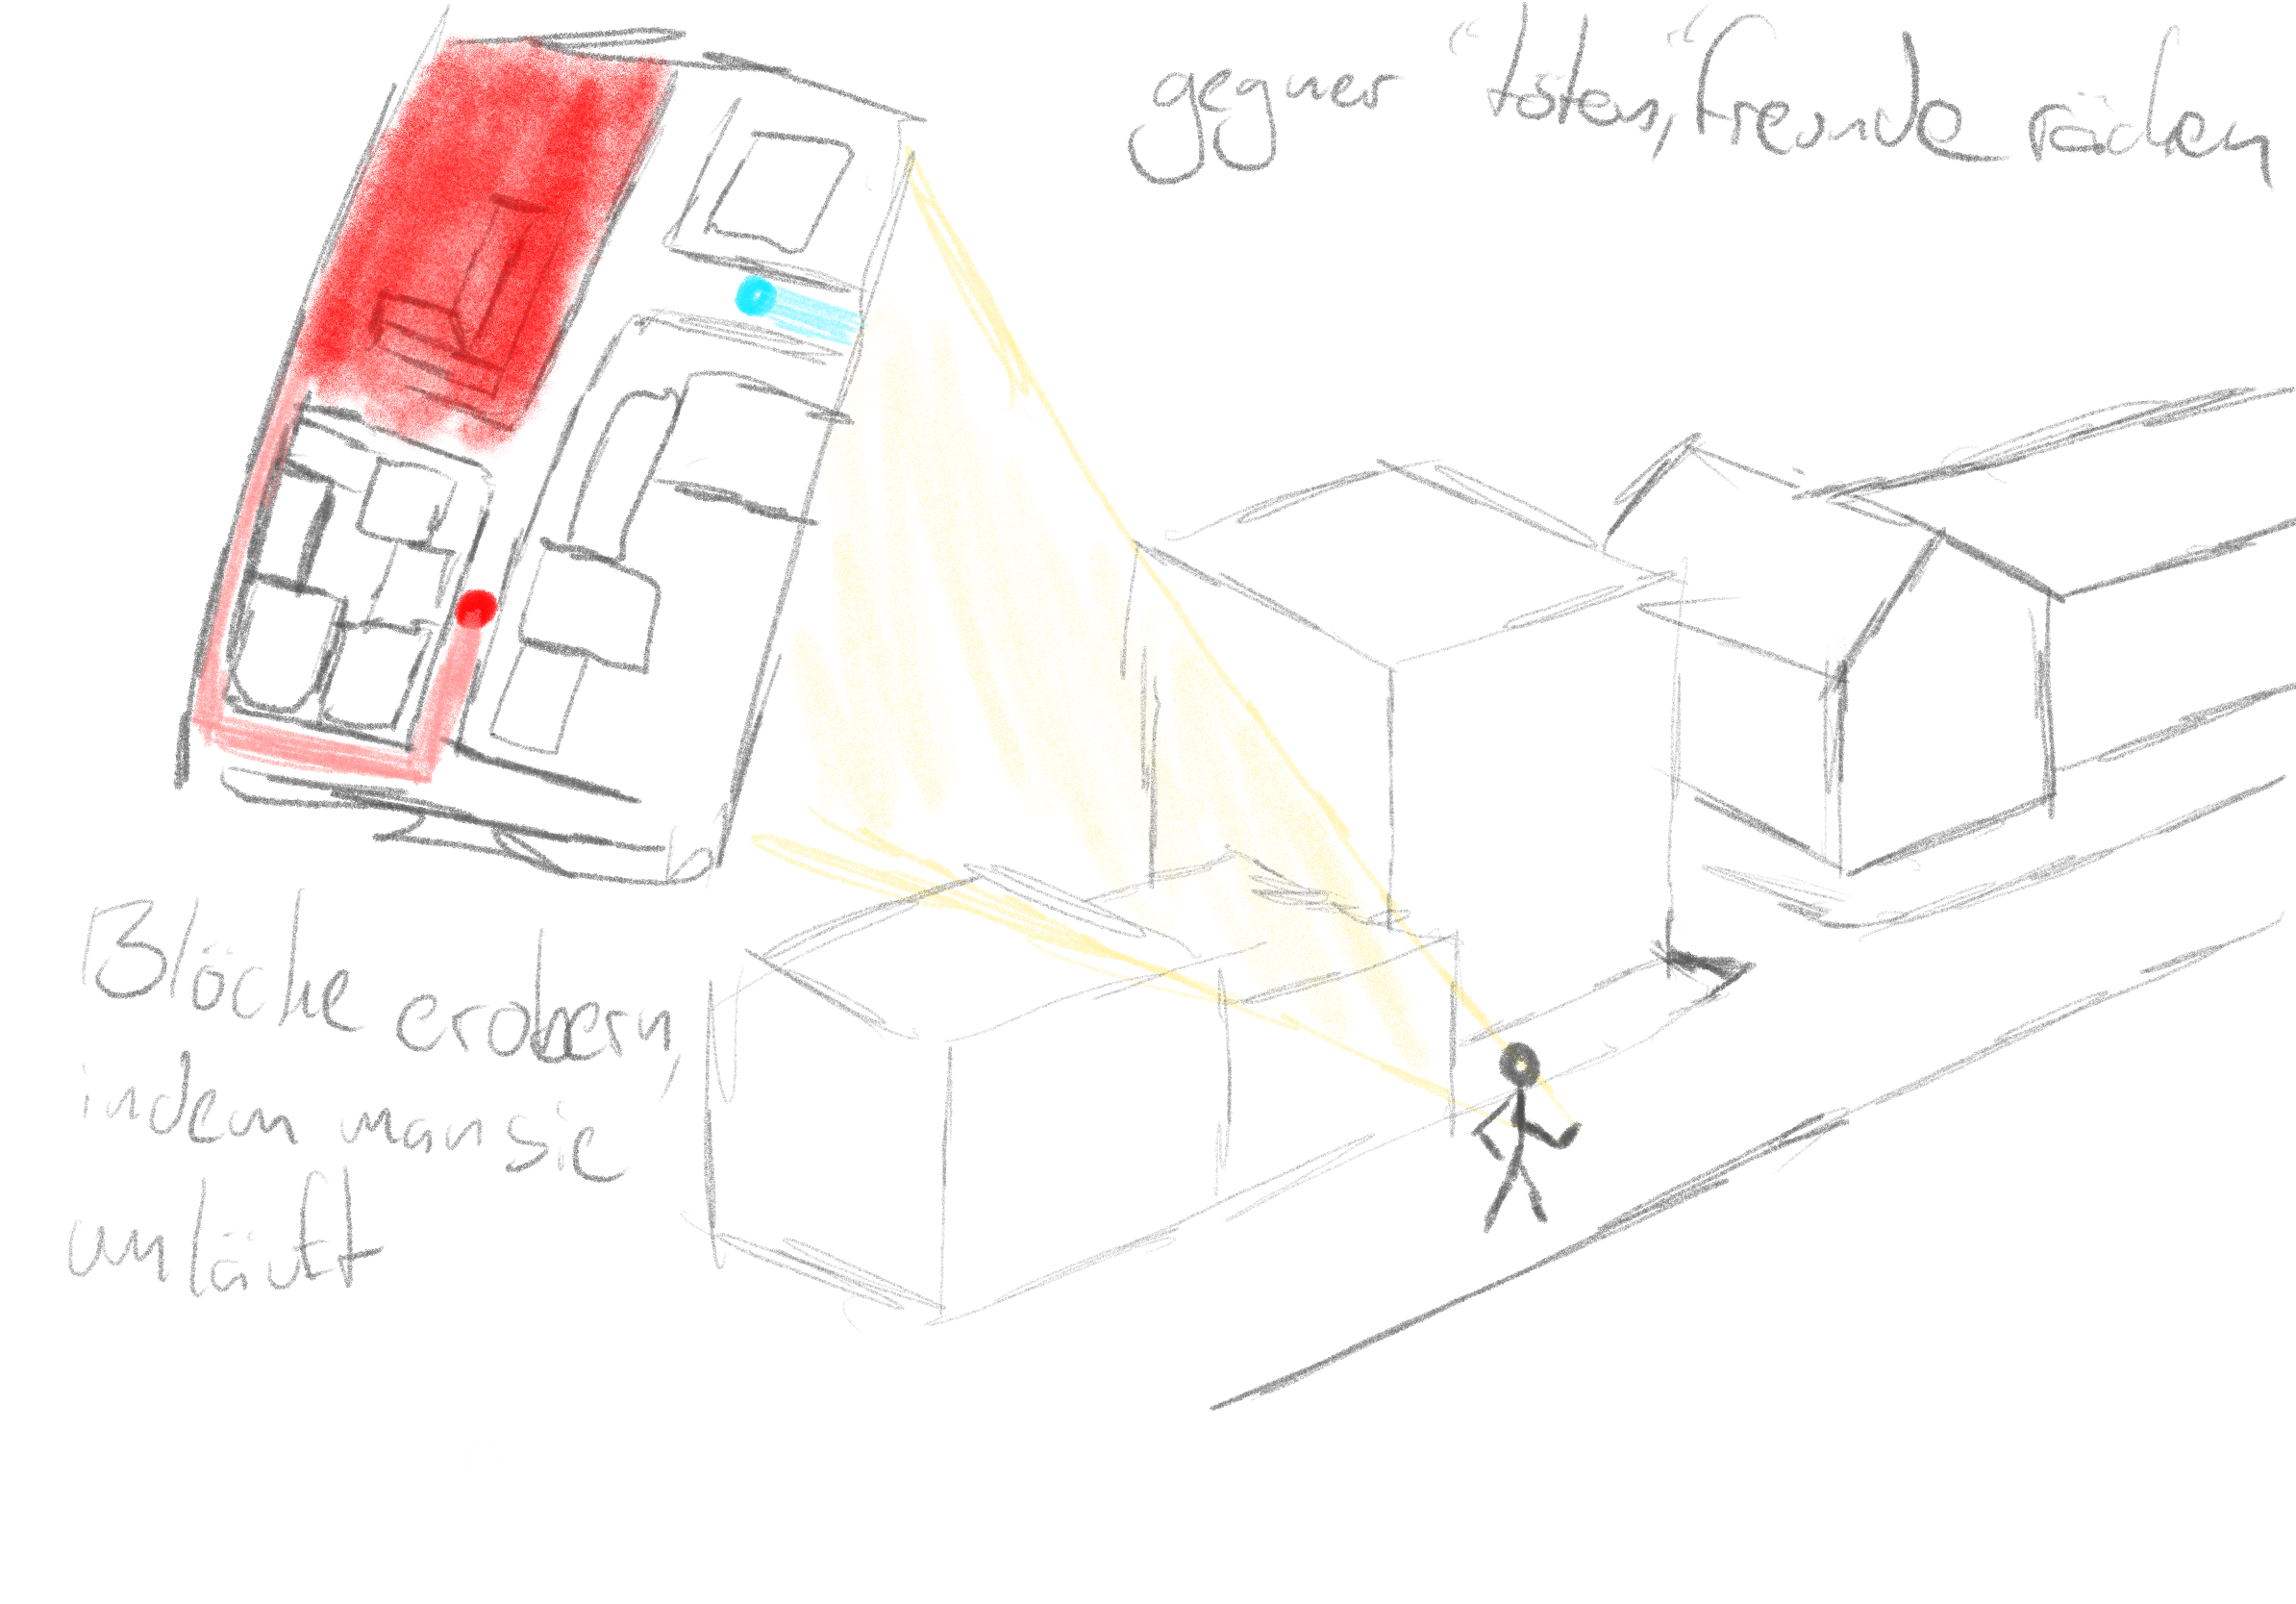 gegner "töten," freunde rächen
Blöcke erobern,
indem man sie
umläuft